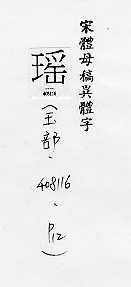 宋體母稿異體字
瑶
408116
(玉部、408116、P12)